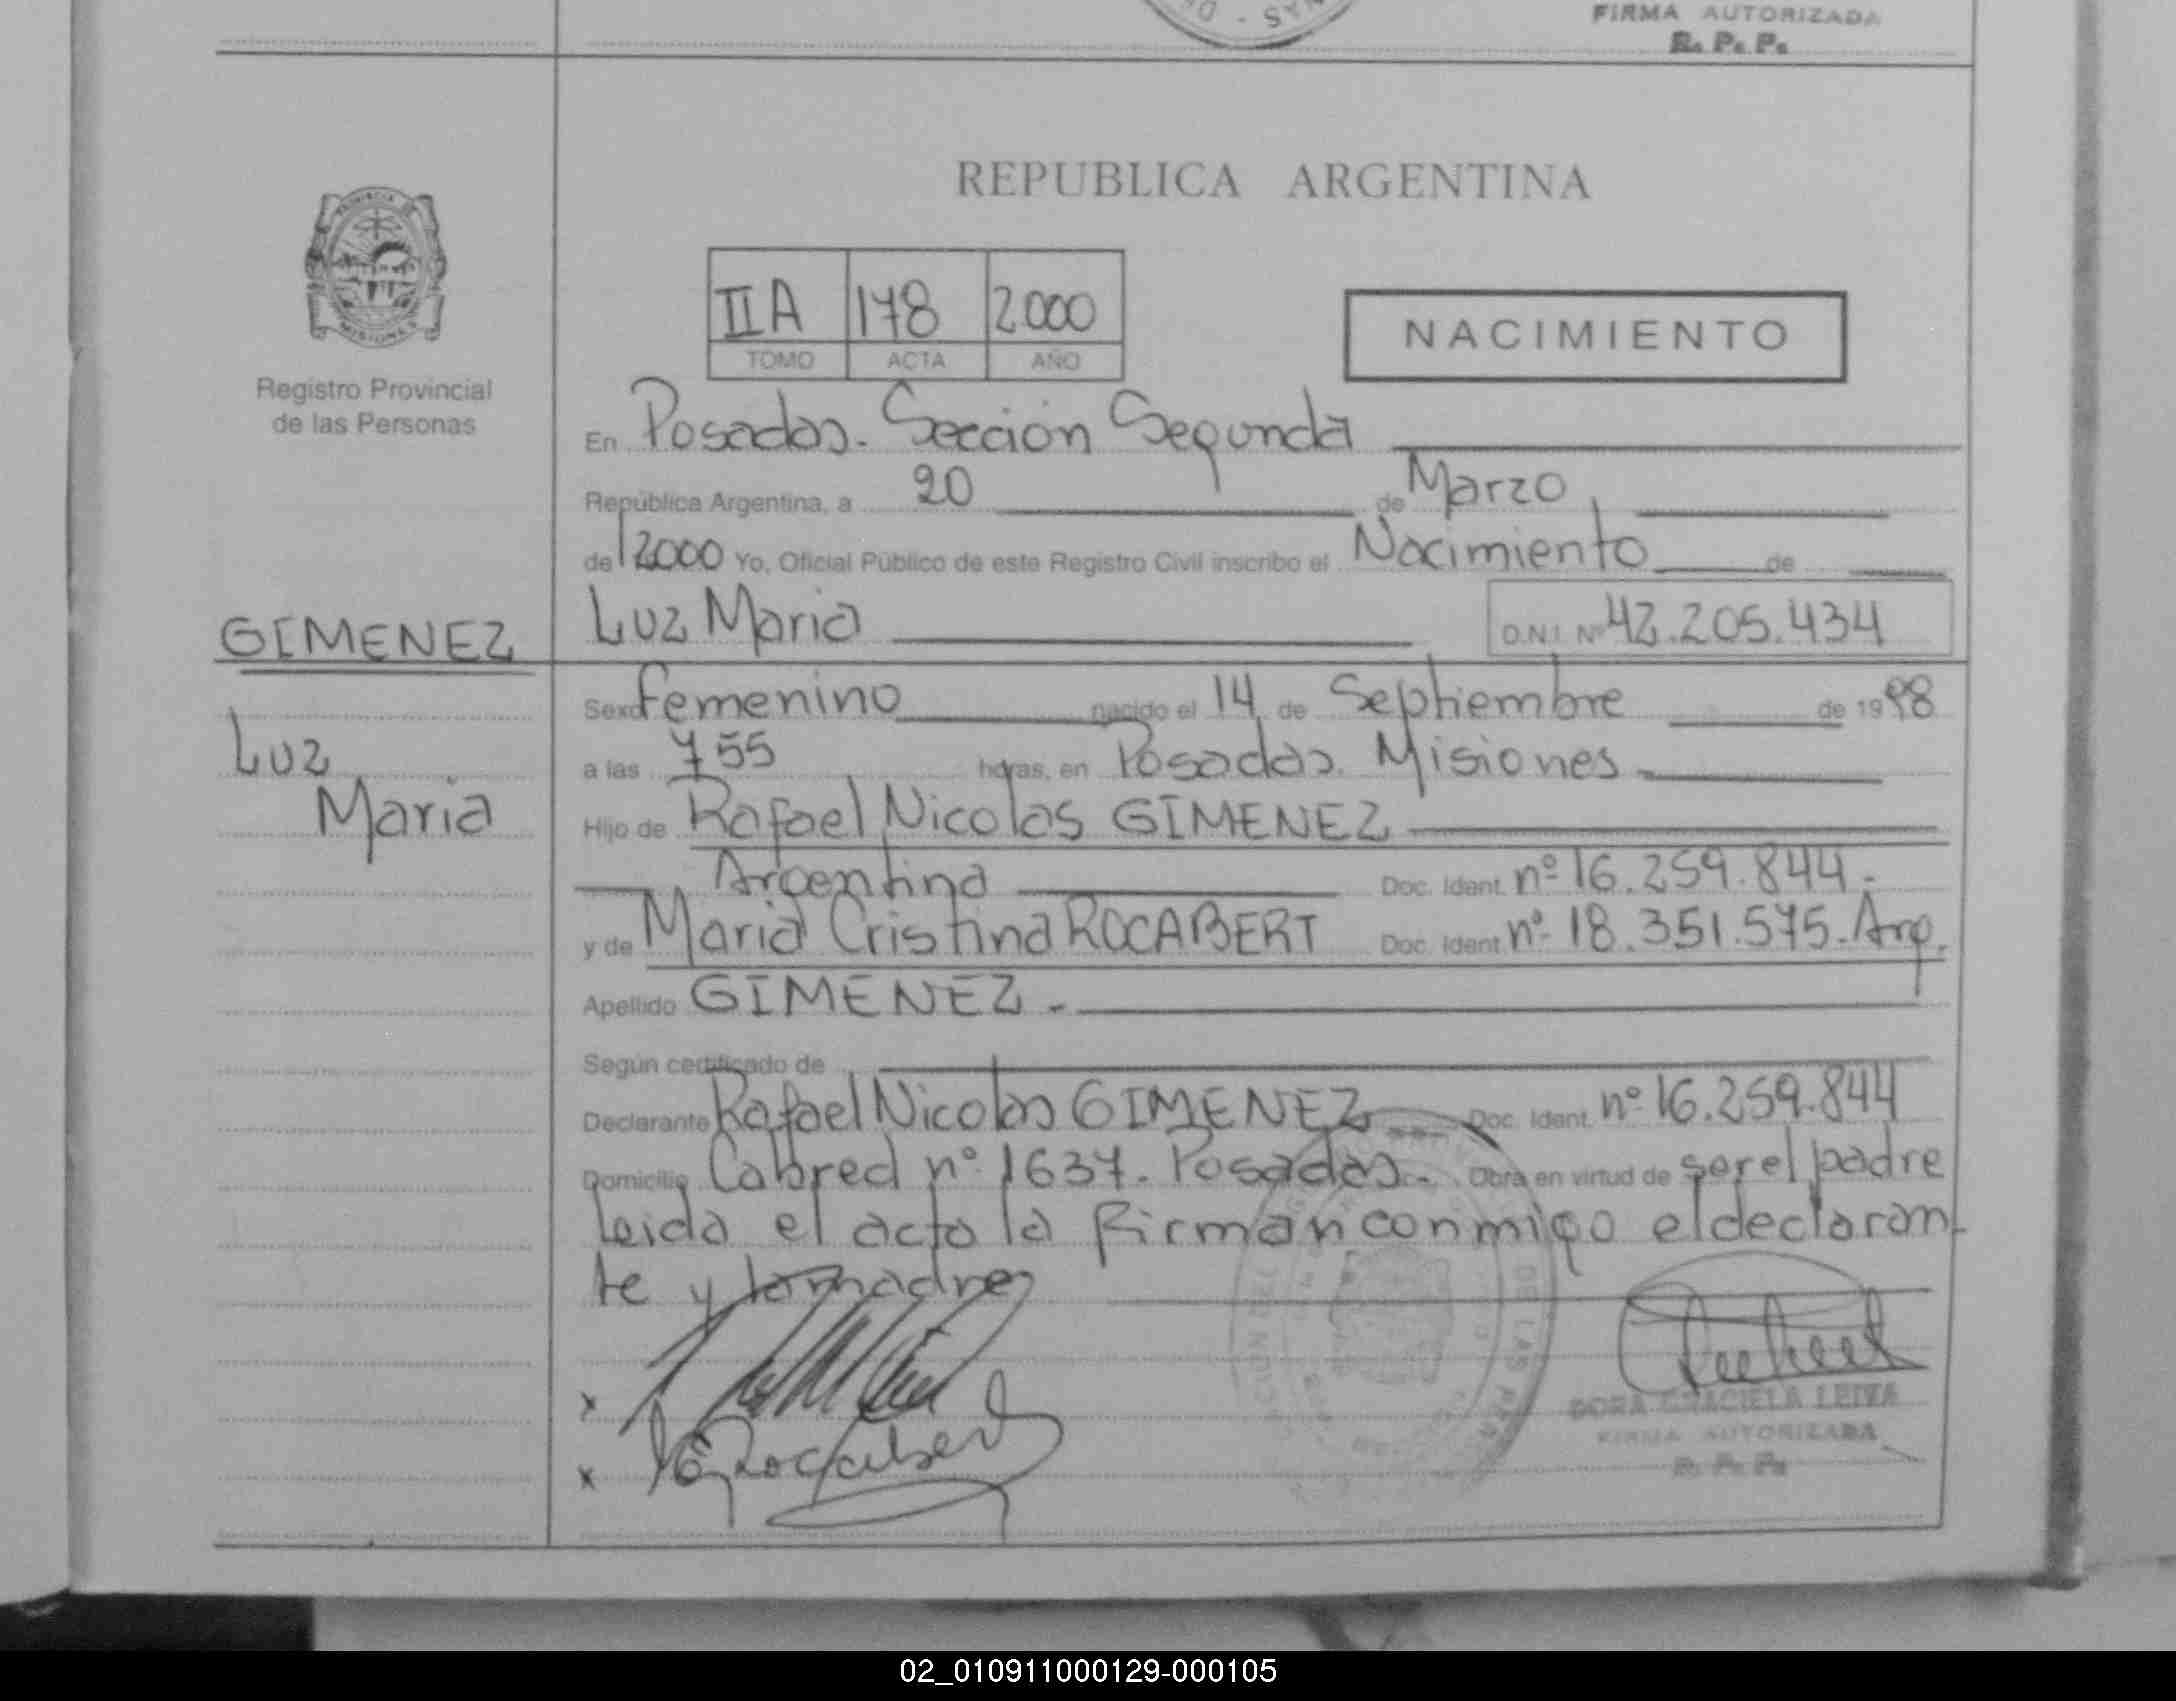 FIRMA AUTORIZADA
R. P. P.
REPUBLICA ARGENTINA
IIA 178 2000
TOMO ACTA AÑO
NACIMIENTO
PROVINCIA DE
MISIONES
Registro Provincial
de las Personas
En Posadas. Sección Segunda
República Argentina, a 20 de Marzo
de 2000 Yo, Oficial Público de este Registro Civil inscribo el Nacimiento de
GIMENEZ
Luz Maria D.N.I. Nº 42.205.434
Luz
Maria
Sexo Femenino nacido el 14 de Septiembre de 1998
a las 7 55 horas, en Posadas. Misiones.
Hijo de Rafael Nicolas GIMENEZ
Argentina Doc. Ident. nº 16.259.844.
y de Maria Cristina ROCABERT Doc. Ident. nº 18.351.575. Arg.
Apellido GIMENEZ.
Según certificado de
Declarante Rafael Nicolas GIMENEZ Doc. Ident. nº 16.259.844
Domicilio Cabred nº 1637. Posadas. Obra en virtud de ser el padre
leida el acta la firman conmigo el declaran
te y la madre
x
x Rocabert
DORA GRACIELA LEIVA
FIRMA AUTORIZADA
R. P. P.
02_010911000129-000105